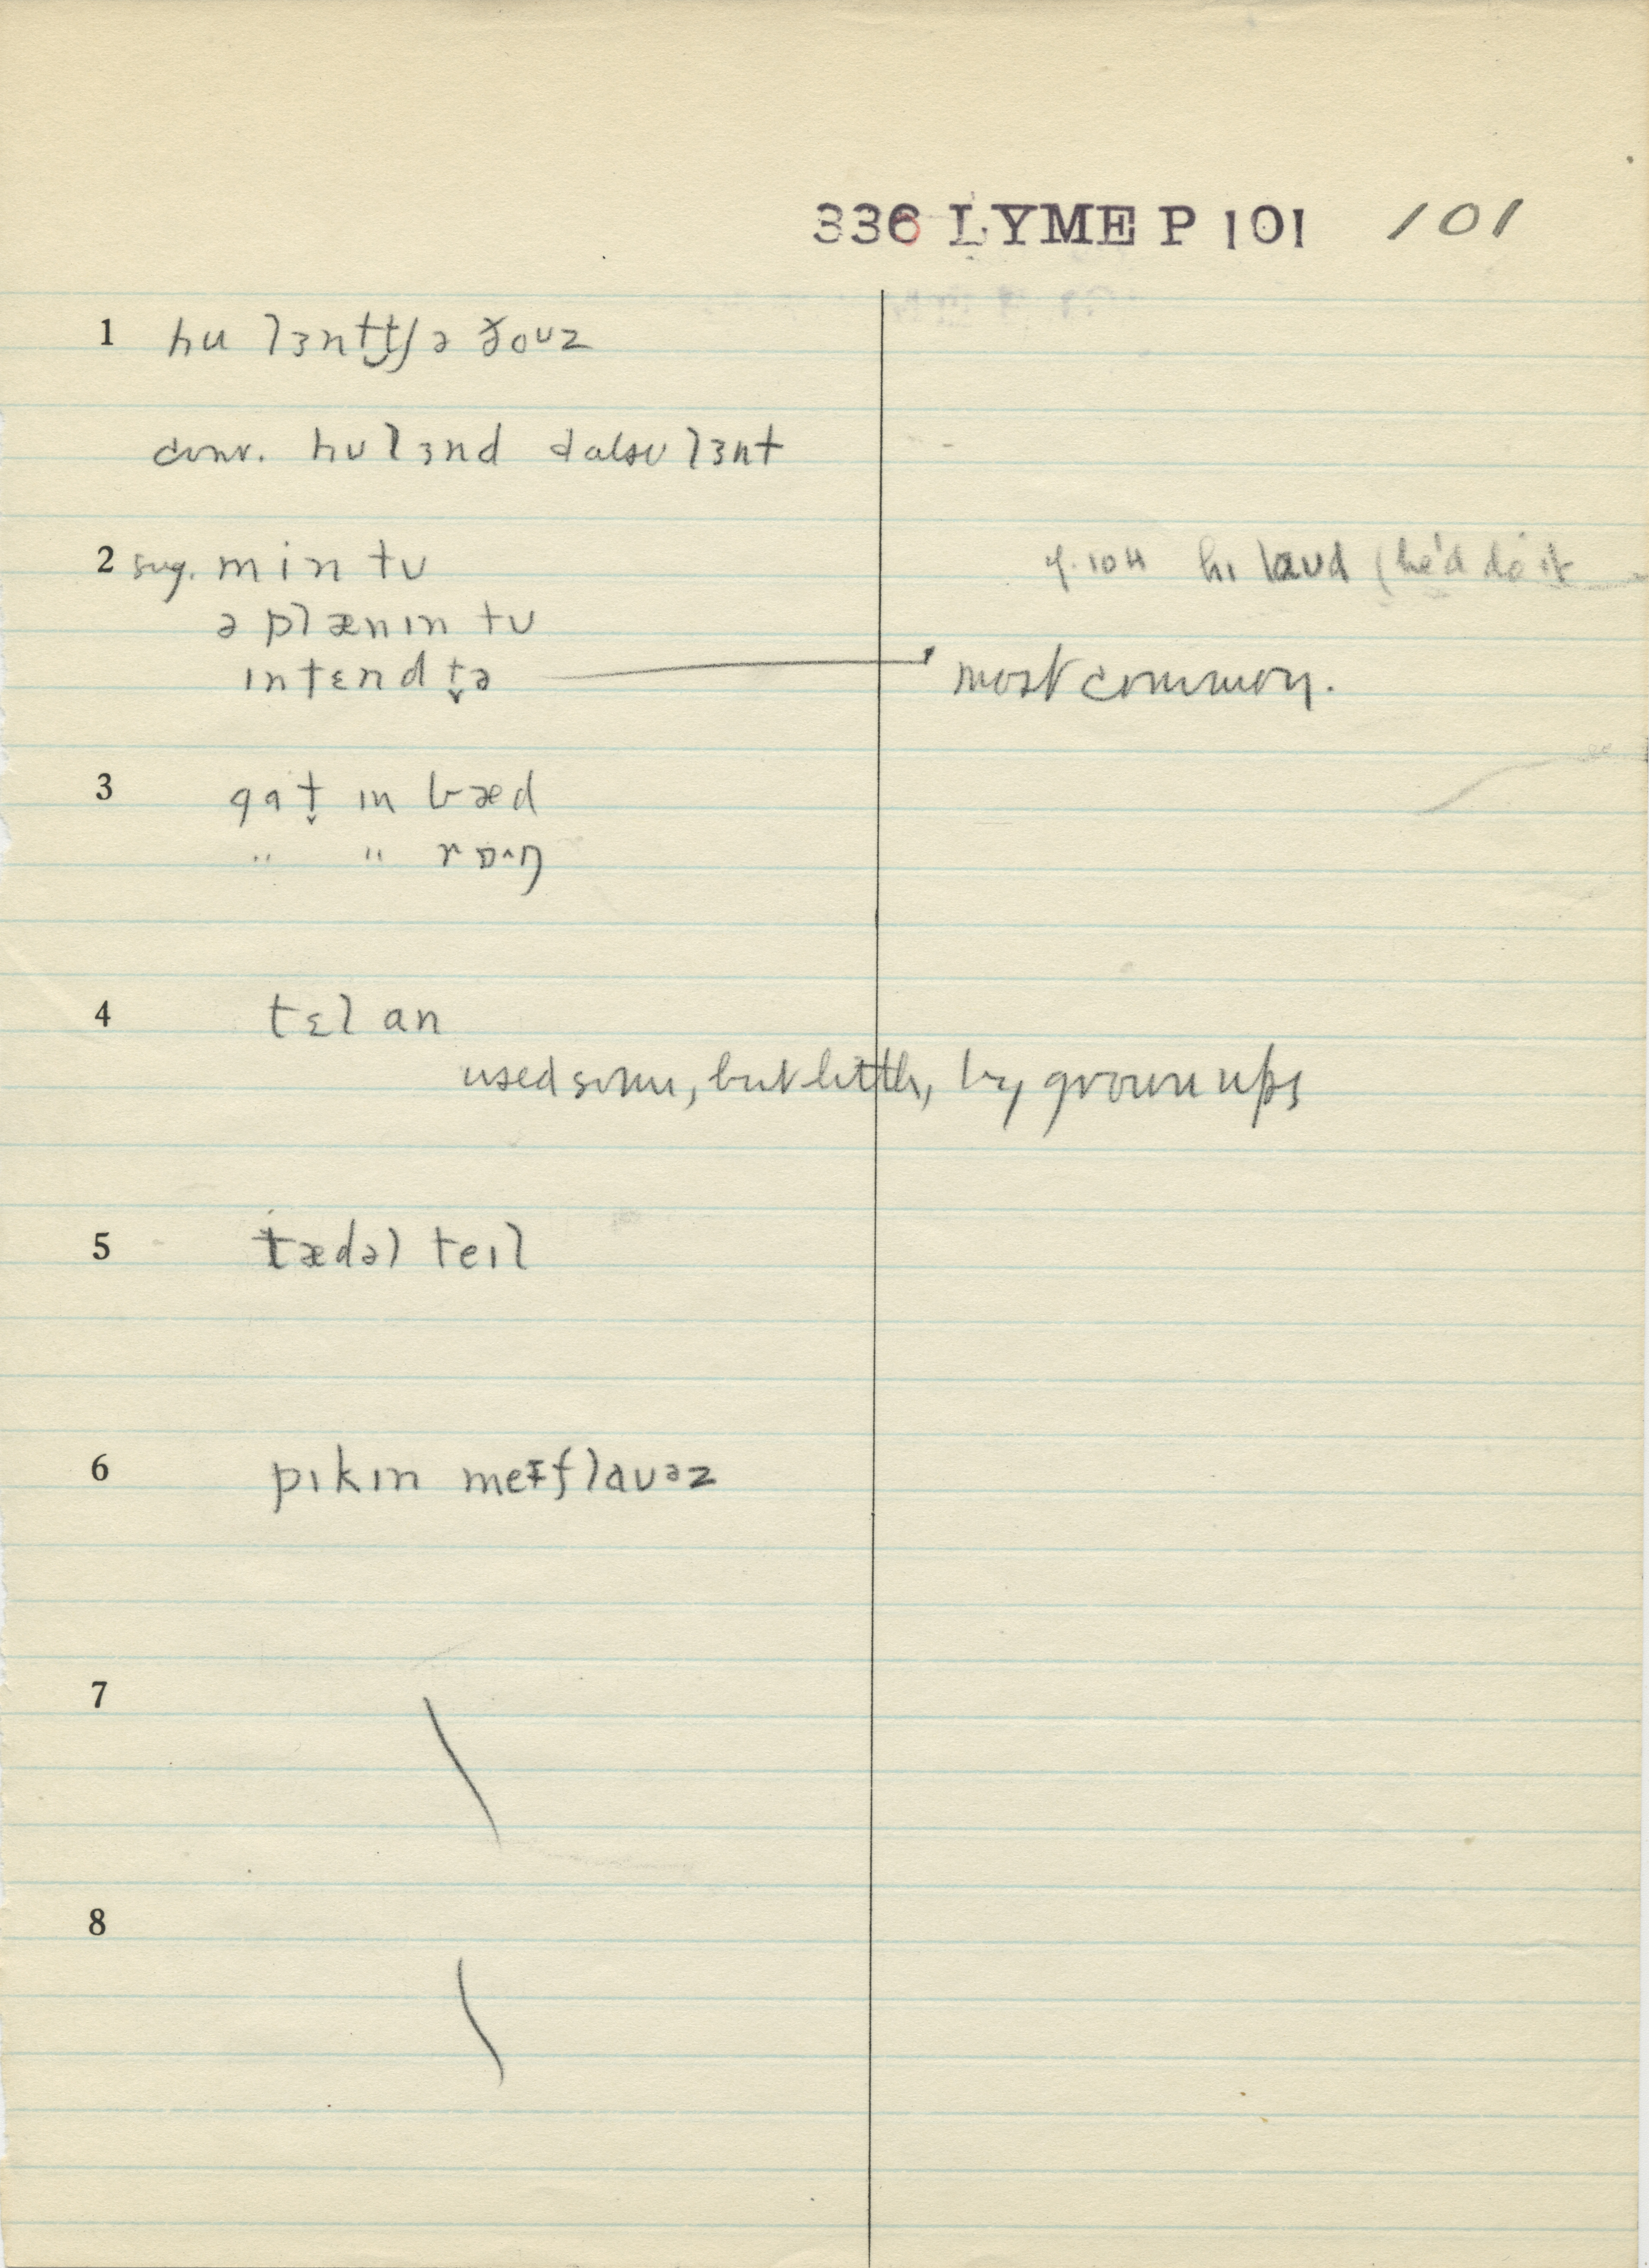 336 LYME P 101 101
1 hu lɜntt͜ʃə ðoʊz
conv. hu lɜnd also lɜnt
2 sug. min tu
ə plænɪn tu
ɪntɛnd t̬ə most common.
hɪ laʊd (he'd do it
3 gat̬ ɪn bæd
" " rɒ˄ŋ
4 tɛl an
used some, but little, by grown ups
5 tædəl teɪl
6 pɪkɪn meɪflaʊəz
7
8